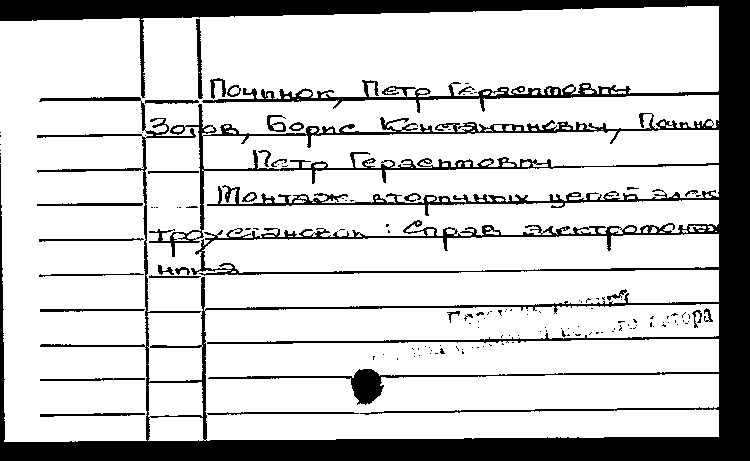 Починок, Петр Герасимович
Зотов, Борис Константинович, Починок
Петр Герасимович
Монтаж вторичных цепей элек
троустановок : Справ электромонтаж
ника
первого автора